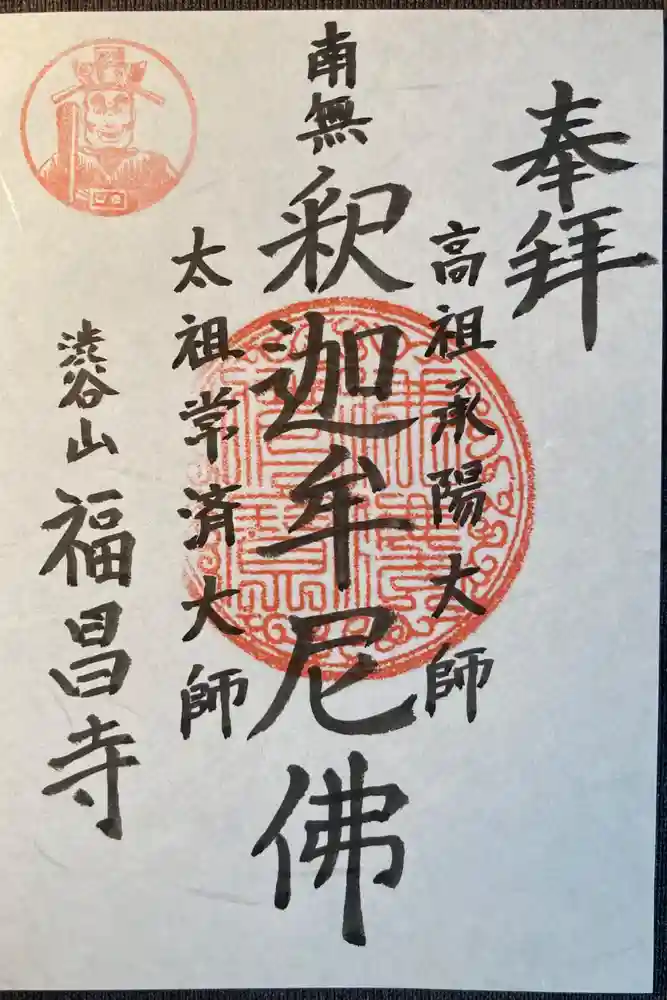 奉拝
高祖承陽大師
南無釈迦牟尼佛
太祖常済大師
澁谷山福昌寺